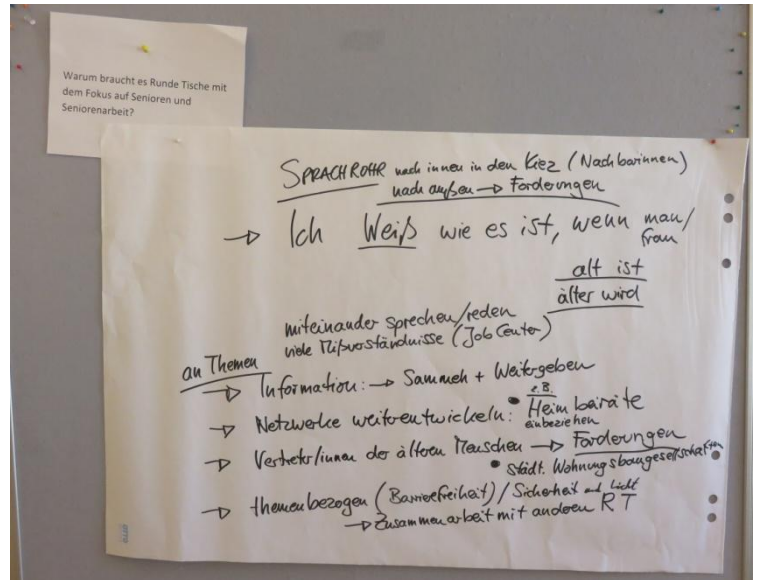 Warum braucht es Runde Tische mit
dem Fokus auf Senioren und
Seniorenarbeit?
SPRACHROHR nach innen in den Kiez (Nachbarinnen)
nach außen → Forderungen
→ Ich Weiß wie es ist, wenn man/
frau
alt ist
älter wird
miteinander sprechen/reden
viele Mißverständnisse (Job Center)
an Themen
→ Information: → Sammeln + Weitergeben
→ Netzwerke weiterentwickeln: • z.B. Heimbeiräte
einbeziehen
→ Vertreter/innen der älteren Menschen → Forderungen
• städt. Wohnungsbaugesellschaften
→ themenbezogen (Barrierefreiheit) / Sicherheit und Licht
→ Zusammenarbeit mit anderen RT